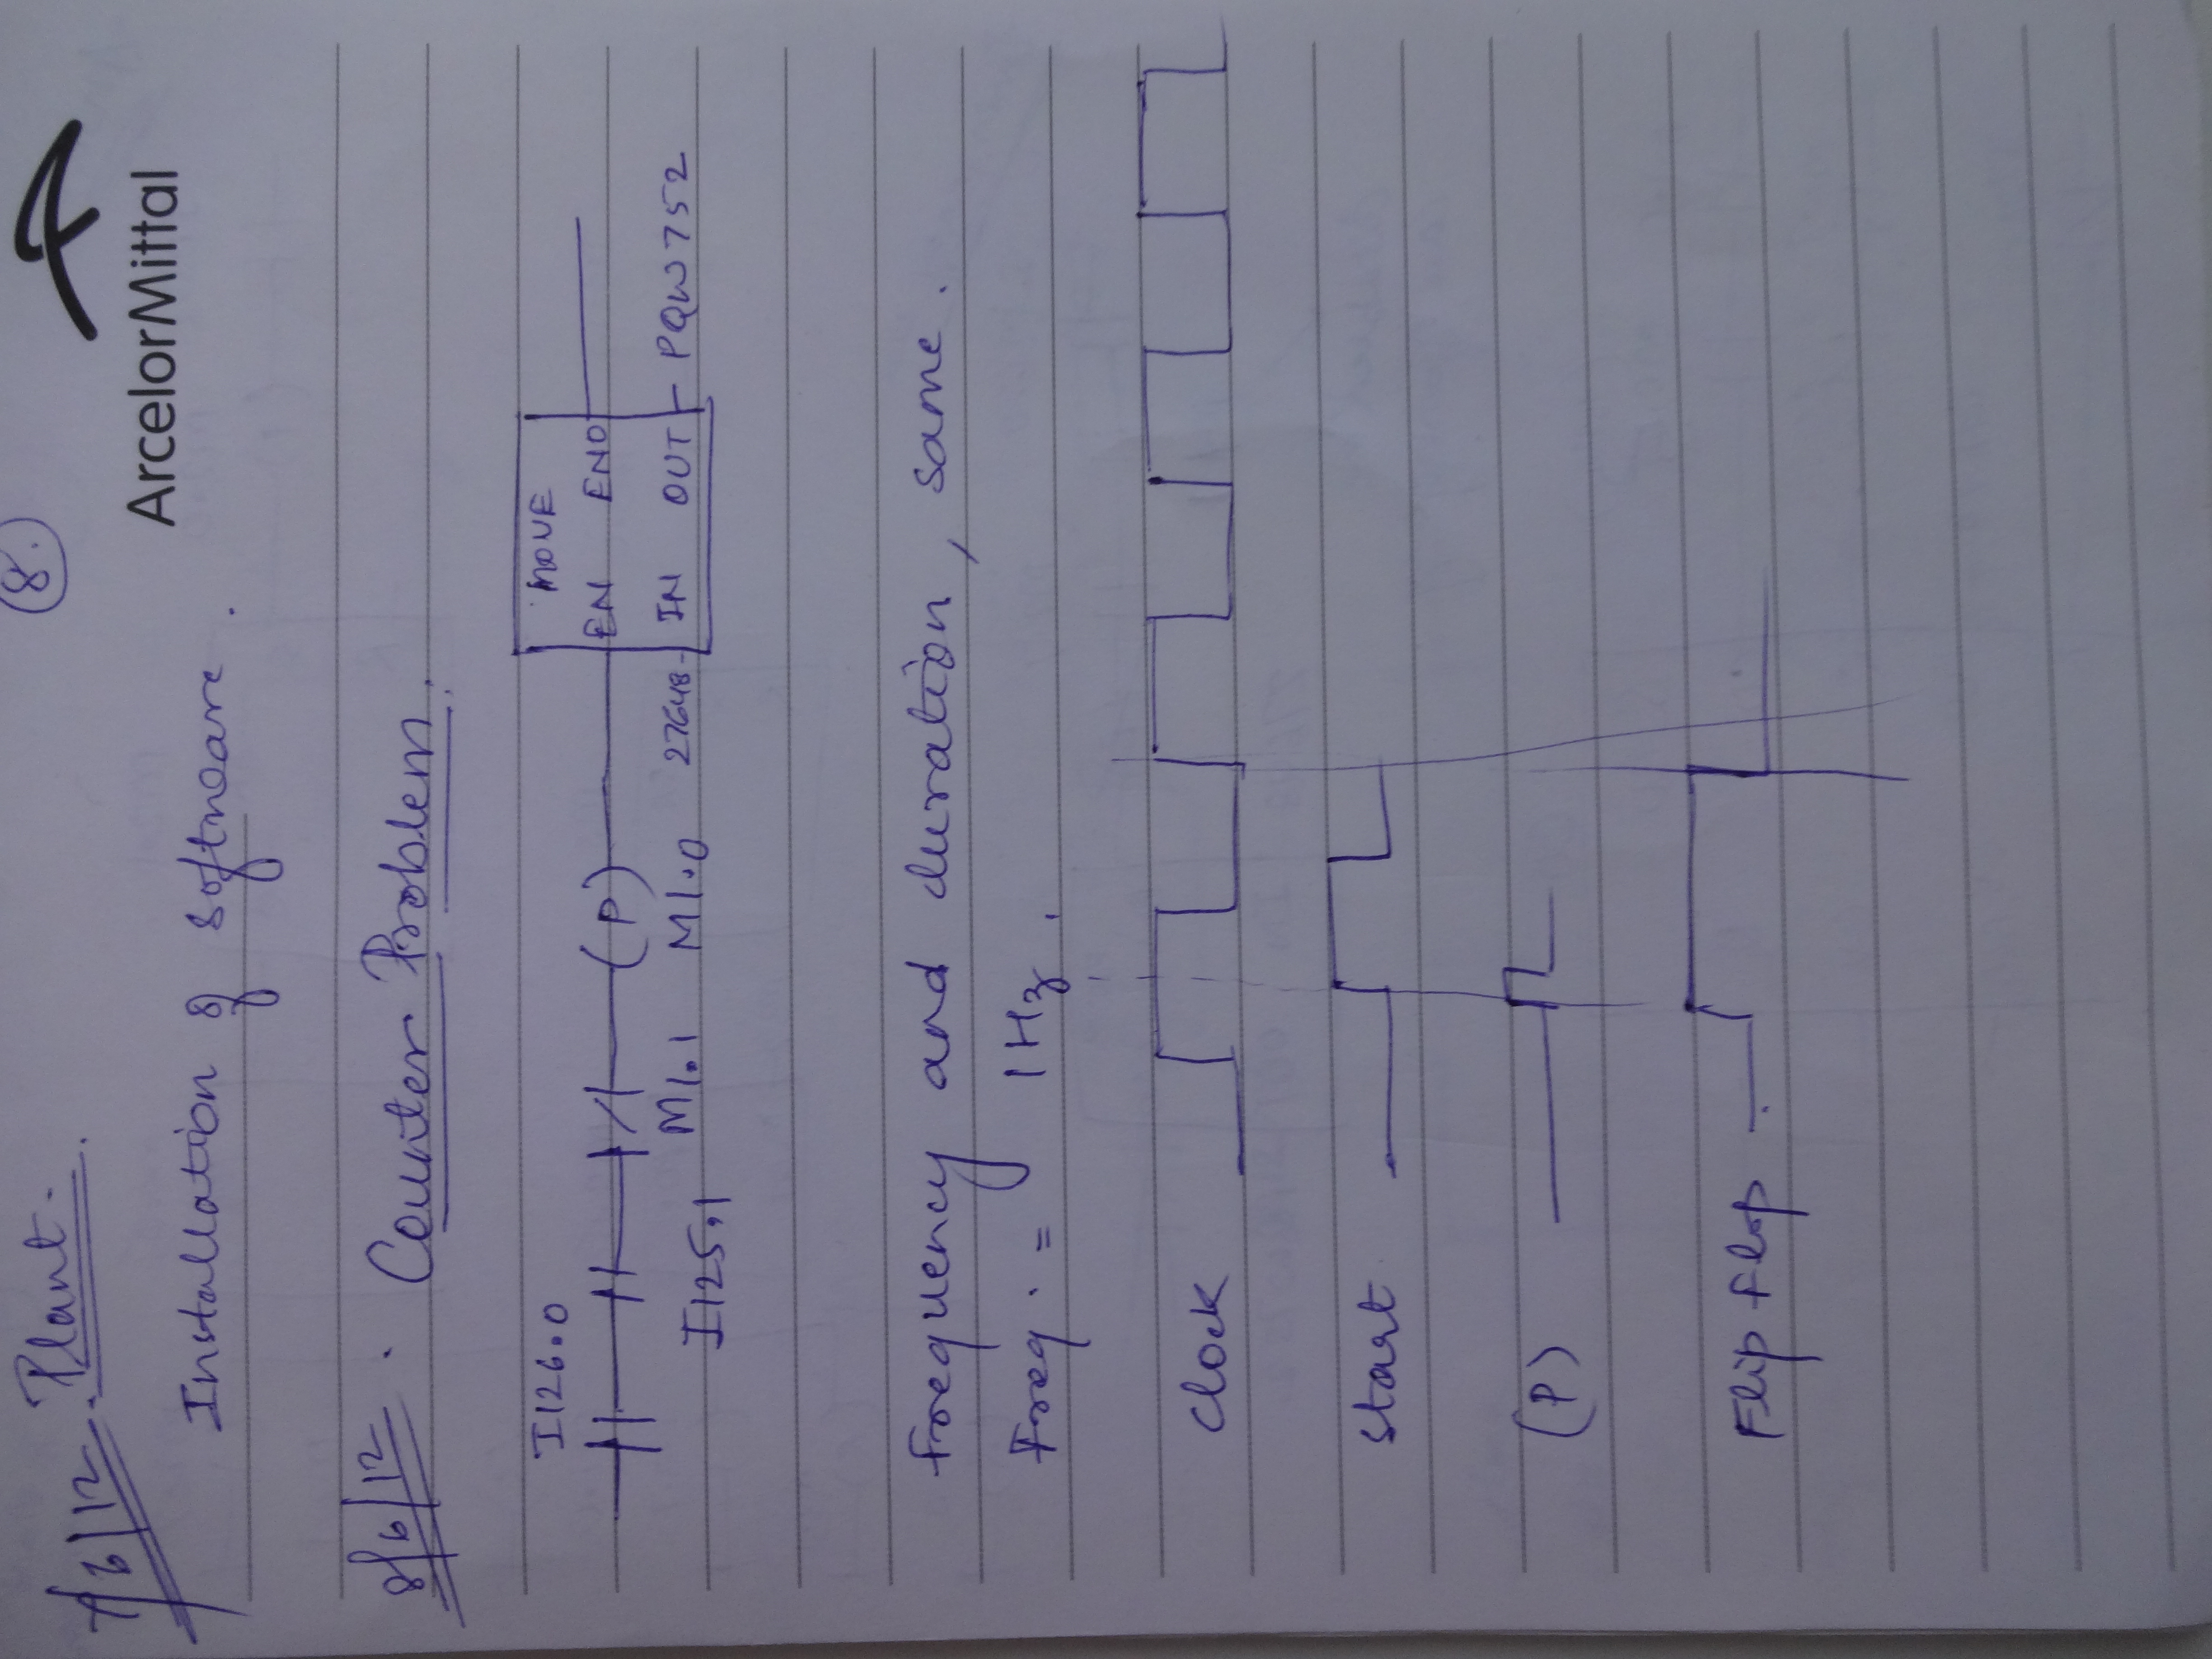 8.
ArcelorMittal
7/6/12. Plant.
Installation of software.
8/6/12. Counter Problem.
MOVE
I126.0 (P) EN ENO
I125.1 M1.1 M1.0 27648 IN OUT PQW752
frequency and duration, same.
freq. = 1Hz.
Clock
Start
(P)
Flip Flop